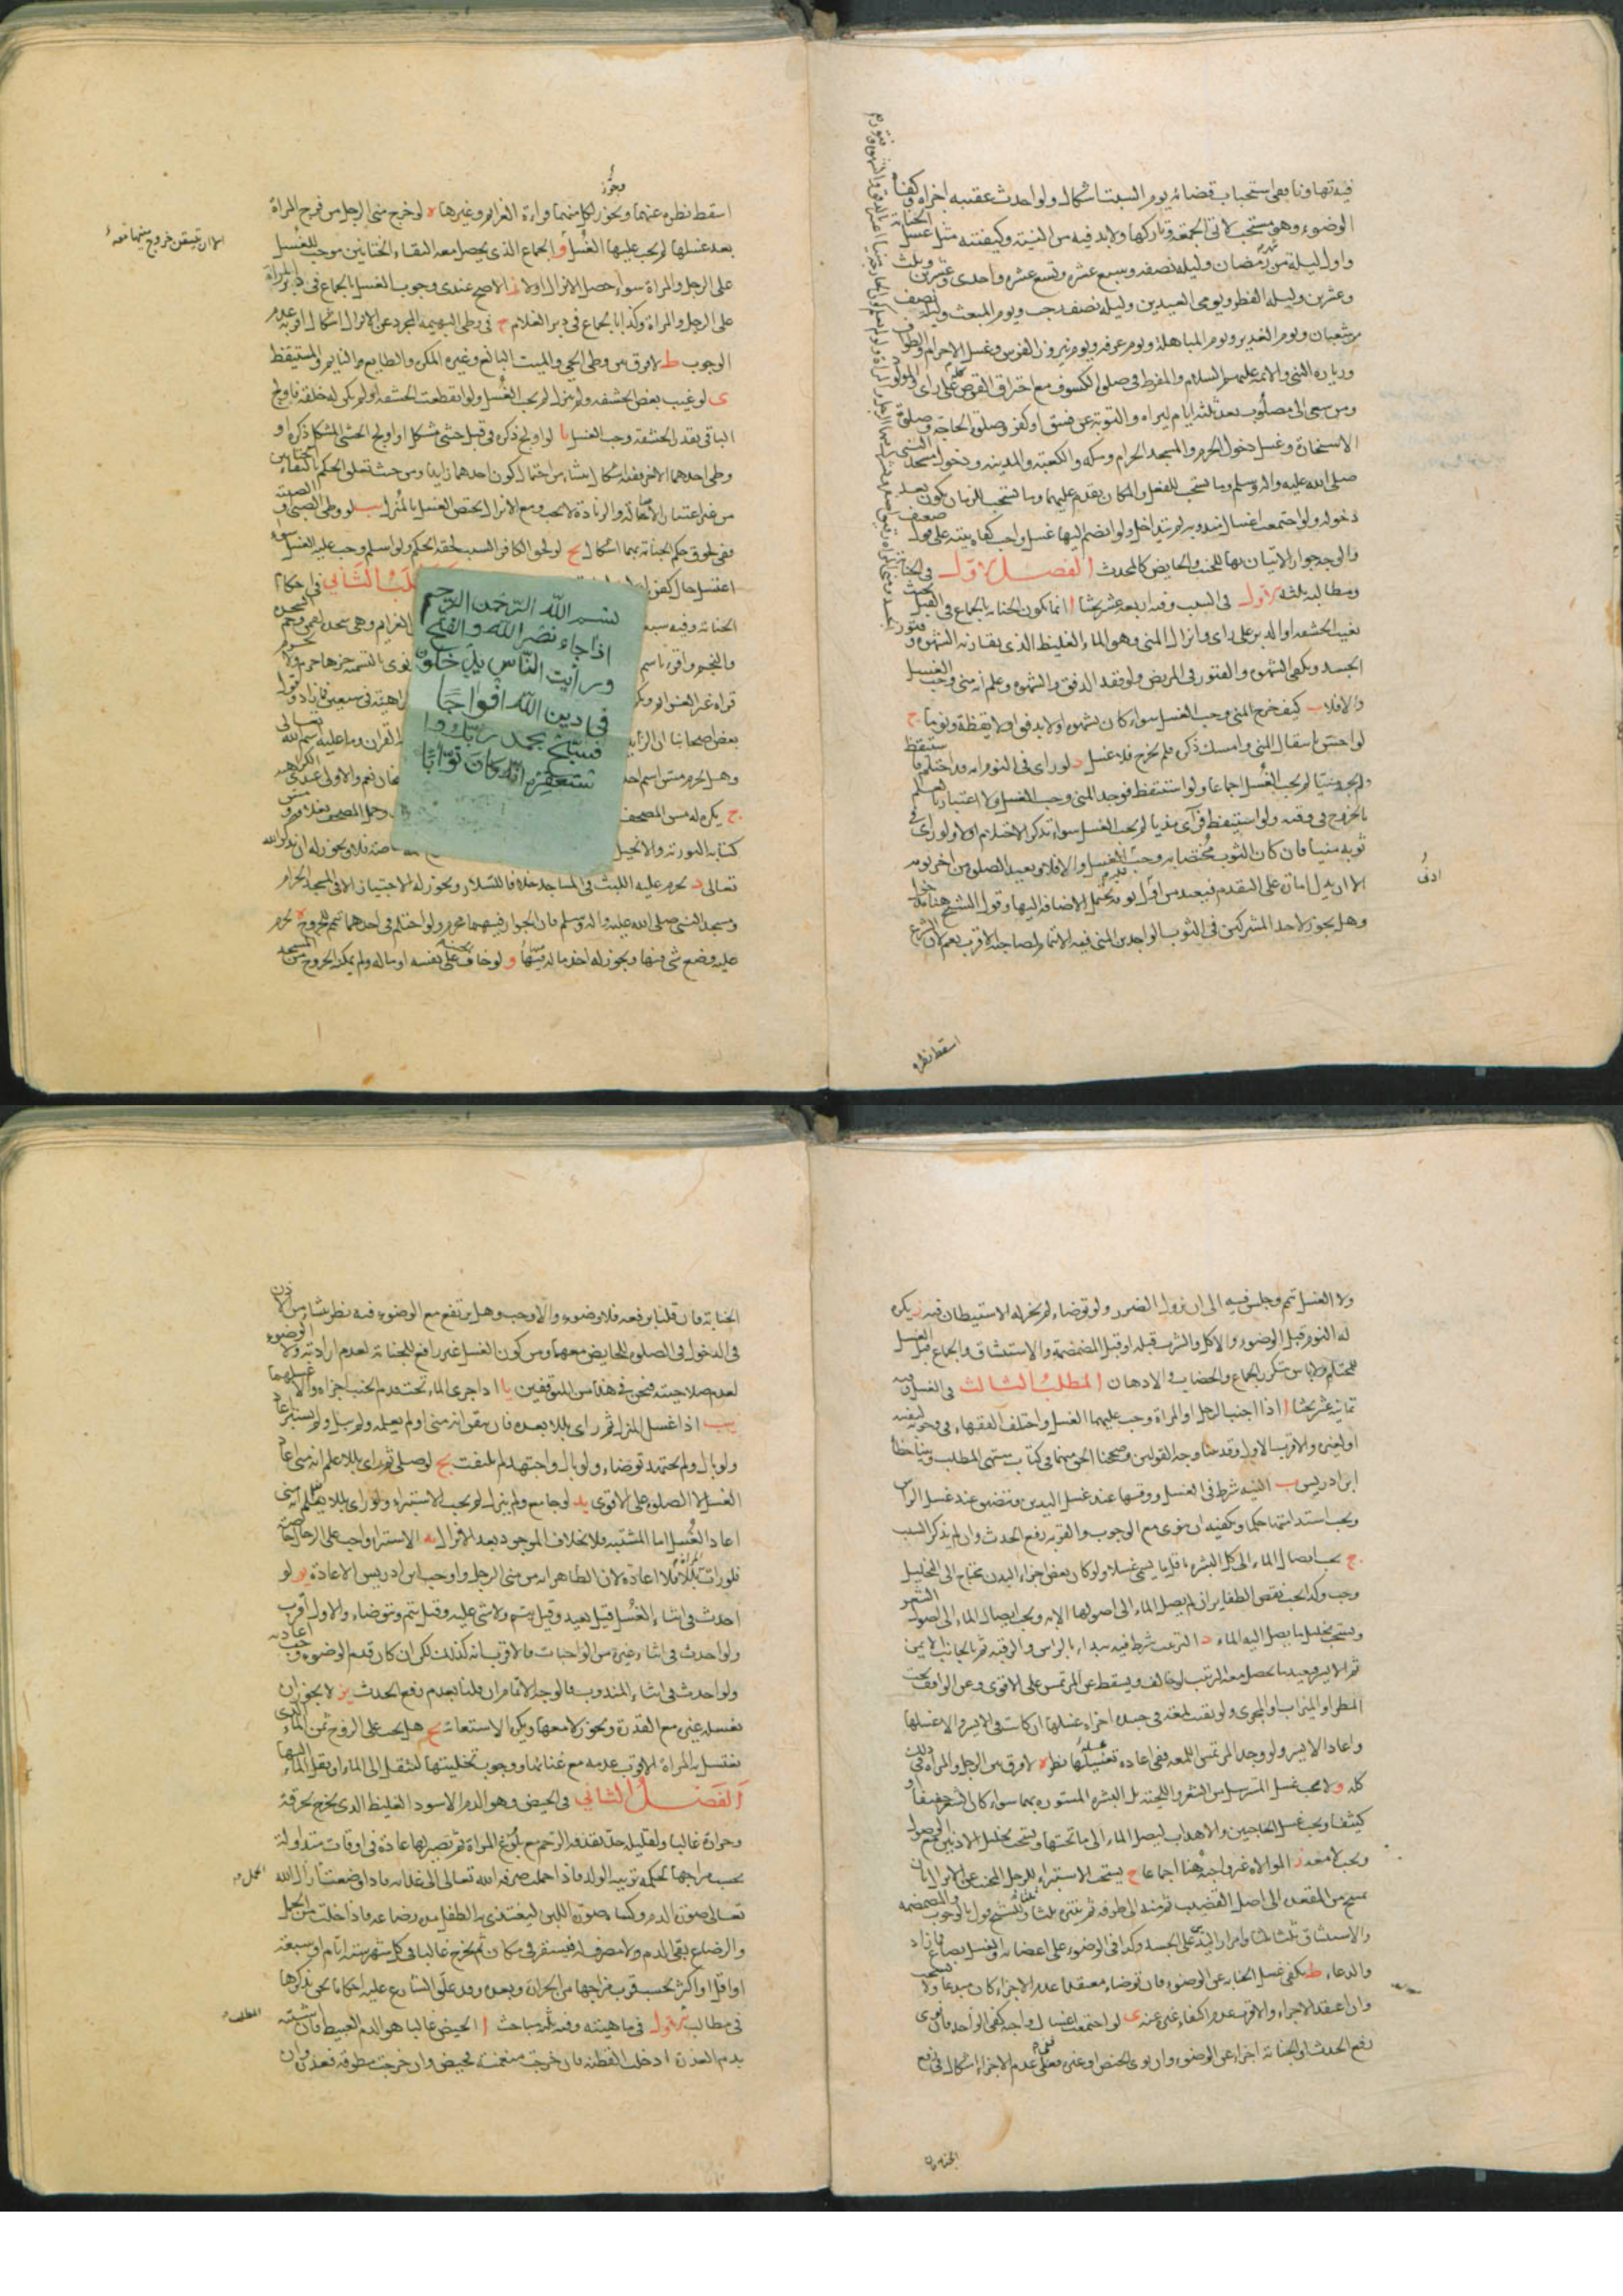 فيه تهاونا ففي استحباب قضائه يوم السبت اشكال ولو احدث عقيبه اجزاه وكفاه
الوضوء وهو مستحب لاتى الجمعة وتاركها ولابد فيه من النية وكيفيته مثل غسل الجنابة
واول ليلة من شهر رمضان وليلة نصفه وسبع عشره وتسع عشره واحدى وعشرين وثلث
وعشرين وليلة الفطر ويومى العيدين وليلة نصف رجب ويوم المبعث وليلة نصف
من شعبان ويوم الغدير ويوم المباهلة ويوم عرفه ويوم نيروز الفرس وغسل الاحرام والطواف
وزيارة النبى والائمة عليهم السلام والمفرط فى صلوة الكسوف مع احتراق القرص على راى والمولود
ومن سعى الى مصلوب بعد ثلثة ايام ليراه والتوبة عن فسق او كفر وصلوة الحاجة وصلوة
الاستخارة وغسل دخول الحرم والمسجد الحرام ومكه والكعبة والمدينه ودخول مسجد النبى
صلى الله عليه واله وسلم وما يستحب للفعل والمكان يقدم عليهما وما يستحب للزمان يكون بعد
دخوله ولو اجتمعت اغسال مندوبه لم تتداخل ولو انضم اليها غسل واجب كفاه نيته على قول ضعيف
والوجه جواز الاتيان بها للجنب والحايض كالمحدث الفصل الاول فى الجنابة
ومطالبه ثلثه الاول فى السبب وفيه اربعه عشر بحثا ا انما تكون الجنابه بالجماع فى القبل بحيث
تغيب الحشفه او الدبر على راى وانزال المنى وهو الماء الغليظ الذى يقارنه الشهوه وفتور
الجسد ويكفى الشهوه والفتور فى المريض ولو فقد الدفق والشهوه وعلم انه منى وجب الغسل
والا فلا ب كيف خرج المنى وجب الغسل سواء كان بشهوه او لا بدفق او لا يقظة ونوما ج
لو احس بانتقال المنى وامسك ذكره فلم يخرج فلا غسل د لو راى فى النوم انه قد احتلم فاستيقظ
ولم يجد منيا لم يجب الغسل اجماعا ولو استيقظ فوجد المنى وجب الغسل ولا اعتبار بالعلم
بالخروج فى وقته ولو استيقظ فرآى مذيا لم يجب الغسل سواء تذكر الاحتلام او لا ه لو راى فى
ثوبه منيا فان كان الثوب مختصا به وجب الغسل والا فلا ويعيد الصلوة من اخر نومه
الا ان يدل امارة على التقدم فيعيد من اول نومه يحتمل الاضافه اليها وقول الشيخ هنا
وهل يجوز لاحد المشتركين فى الثوب الواجدين المنى فيه الائتمام لصاحبه الاقرب نعم لان الشرع
ادنى
اسقط نظره
ويجوز
اسقط نظره عنهما ويجوز لكل منهما قراءة العزائم وغيرها ه لو خرج منى الرجل من فرج المراة
الا ان تتيقن خروج منيها معه
بعد غسلها لم يجب عليها الغسل و الجماع الذى يحصل معه التقاء الختانين موجب للغسل
على الرجل والمراة سواء حصل الانزال او لا ز الاصح عندى وجوب الغسل بالجماع فى دبر المراة
على الرجل والمراة وكذا بالجماع فى دبر الغلام ح فى وطى البهيمة المجرد عن الانزال اشكال اقربه عدم
الوجوب ط لا فرق بين وطى الحى والميت البالغ وغيره المكره والطايع والنايم والمستيقظ
ى لو غيب بعض الحشفه ولم ينزل لم يجب الغسل ولو انقطعت الحشفه او لم يكن له خلقة فاولج
الباقى بقدر الحشفه وجب الغسل يا لو اولج ذكره فى قبل خنثى مشكل او اولج الخنثى المشكل ذكره او
وطى احدهما الاخر ففيه اشكال ينشاء من احتمال كون احدهما زايدا ومن حيث تعلق الحكم بالتقاء الختانين
من غير اعتبار الاصالة والزيادة لا يجب ومع الانزال يختص الغسل بالمنزل يب لو وطى الصبى او الصبية
ففى لحوق حكم الجنابة بهما اشكال يج لو لحق الكافر السبب لحقه الحكم ولو اسلم وجب عليه الغسل سواء
اغتسل حال كفره المطلب الثانى فى احكام
الجنابه وفيه سبعه العزايم وهى سجده لقمن وحم السجدة
والنجم واقرء باسم نوى بالتسمية جزءها حرم ولا
بعض اصحابنا القران وما عليه اسم الله تعالى
وهل يحرم مس اسم نعم والاولى عندى الكراهيه
ج يكره له مس المصحف وحمل المصحف بغلافه ومس
كتابه التورية والانجيل
تعالى د يحرم عليه اللبث فى المساجد خلافا لسلار ويجوز له الاجتياز الا فى المسجد الحرام
ومسجد النبى صلى الله عليه واله وسلم فان الجواز فيهما محرم ولو احتلم فى احدهما تيمم للخروج ه يحرم
عليه وضع شى فيها ويجوز له اخذ ماله منها و لو خاف الجنب على نفسه او ماله ولم يمكنه الخروج من المسجد
بسم الله الرحمن الرحيم
اذا جاء نصر الله والفتح
ورأيت الناس يدخلون
فى دين الله افواجا
فسبح بحمد ربك وا
ستغفره انه كان توابا
ولا الغسل تيمم وجلس فيه الى ان يزول الضرر ولو توضاء لم يجز له الاستيطان فيه ز يكره
له النوم قبل الوضوء والاكل والشرب قبله او قبل المضمضة والاستنشاق والجماع قبل الغسل
للمحتلم ولا باس بتكرر الجماع والخضاب والادهان المطلب الثالث فى الغسل وفيه
ثمانية عشر بحثا ا اذا اجنب الرجل او المراة وجب عليهما الغسل واختلف الفقهاء فى وجوبه لنفسه
او لغيره والاقرب الاول وقد بينا وجه القولين وصححنا الحق منهما فى كتاب منتهى المطلب وبينا خطأ
ابن ادريس ب النيه شرط فى الغسل ووقتها عند غسل اليدين وتتضيق عند غسل الراس
ويجب استدامتها حكما وكيفيته ان ينوى مع الوجوب والقربه رفع الحدث وان لم يذكر السبب
ج يجب ايصال الماء الى كل البشره باقل ما يسمى غسلا ولو كان بعض اجزاء البدن يحتاج الى التخليل
وجب وكذا يجب نقض الظفاير ان لم يصل الماء الى اصولها الا به ويجب ايصال الماء الى اصول الشعر
ويستحب تخليل ما يصل اليه الماء د الترتيب شرط فيه يبداء بالراس والرقبه ثم بالجانب الايمن
ثم الايسر ويعيد ما يحصل معه الترتيب لو خالف ويسقط عن المرتمس على الاقوى وعن الواقف تحت
المطر او الميزاب او المجرى ولو بقيت لمعه فى جسده اجزاه غسلها ان كانت فى الايسر والا غسلها
واعاد الايسر ولو وجد المرتمس اللمعه ففى اعادة غسله نظر ه لا فرق بين الرجل والمراة فى ذلك
كله و لا يجب غسل المسترسل من الشعر واللحية بل البشره المستوره بهما سواء كان الشعر خفيفا او
كثيفا ويجب غسل الحاجبين والاهداب ليصل الماء الى ما تحتها ويستحب تخليل الاذنين مع الوصول
ويجب لا معه ز الموالاه غير واجبة هنا اجماعا ح يستحب الاستبراء للرجل المجنب عن الانزال بان
يمسح من المقعده الى اصل القضيب ثم منه الى طرفه ثم ينتره ثلثا وللشيخ قول بالوجوب والمضمضه
والاستنشاق ثلثا ثلثا وامرار اليد على الجسد وكذا فى الوضوء على اعضائه والغسل بصاع فما زاد
والدعاء ط يكفى غسل الجنابه عن الوضوء فان توضاء معتقدا عدم الاجزاء كان مبدعا ولا يستحب
وان اعتقد الاجزاء والاقرب عدم اكتفاء غيره عنه ى لو اجتمعت اغسال واجبه كفى الواحد فان نوى
رفع الحدث او الجنابة اجزاء عن الوضوء وان نوى الحيض او غيره فعلى عدم الاجزاء اشكال فى رفع
الجنابة فان
الجنابة فان قلنا برفعه فلا وضوء والا وجب وهل يرتفع مع الوضوء فيه نظر ينشاء من الاذن
فى الدخول فى الصلوة للحايض معهما ومن كون الغسل غير رافع للجنابة لعدم ارادته ولا الوضوء
لعدم صلاحيته فنحن فى هذا من المتوقفين يا اذا جرى الماء تحت قدم الجنب اجزاه والا غسلهما
يب اذا اغتسل المنزل ثم راى بللا بعده فان تيقن انه منى او لم يعلمه ولم يبل ولم يستبر اعاد
ولو بال ولم يجتهد توضاء ولو بال واجتهد لم يلتفت يج لو صلى ثم راى بللا علم انه منى اعاد
الغسل لا الصلوة على الاقوى يد لو جامع ولم ينزل لم يجب الاستبراء ولو راى بللا يعلم انه منى
اعاد الغسل اما المشتبه فلا بخلاف الموجود بعد الانزال يه الاستبراء واجب على الرجال خاصة
فلو رات المراة بللا فلا اعادة لان الظاهر انه من منى الرجل واوجب ابن ادريس الاعادة يو لو
احدث فى اثناء الغسل قيل يعيد وقيل يتم ولا شى عليه وقيل يتم ويتوضاء والاول اقرب
ولو احدث فى اثناء غيره من الواجبات فالاقرب انه كذلك لكن ان كان قدم الوضوء وجب اعادته
ولو احدث فى اثناء المندوب فالوجه الاتمام ان قلنا بعدم رفع الحدث يز لا يجوز ان
يغسله غيره مع القدرة ويجوز لا معها ويكره الاستعانة يح هل يجب على الزوج ثمن الماء الذى
تغتسل به المراة الاقرب عدمه مع غنائها ووجوب تخليتها لتنتقل الى الماء او ينقل الماء اليها
الفصل الثانى فى الحيض وهو الدم الاسود الغليظ الذى يخرج بحرقة
وحرارة غالبا ولقليله حد يقذفه الرحم مع بلوغ المراة ثم تصير لها عادة فى اوقات متداولة
بحسب مزاجها لحكمة تربية الولد فاذا حملت صرفه الله تعالى الى غذائه فاذا وضعت ازال الله
الحمل
تعالى صورة الدم وكساه صورة اللبن ليغتذى به الطفل مدة رضاعه فاذا خلت من الحمل
والرضاع بقى الدم ولا مصرف له فيستقر فى مكان ثم يخرج غالبا فى كل شهر ستة ايام او سبعة
او اقل او اكثر بحسب قرب مزاجها من الحرارة وبعده وقد علق الشارع عليه احكاما نحن نذكرها
فى مطالب الاول فى ماهيته وفيه ثلثة مباحث ا الحيض غالبا هو الدم العبيط فان اشتبه
المطلب
بدم العذرة ادخلت القطنة فان خرجت منغمسة فحيض وان خرجت مطوقة فعذرة وان